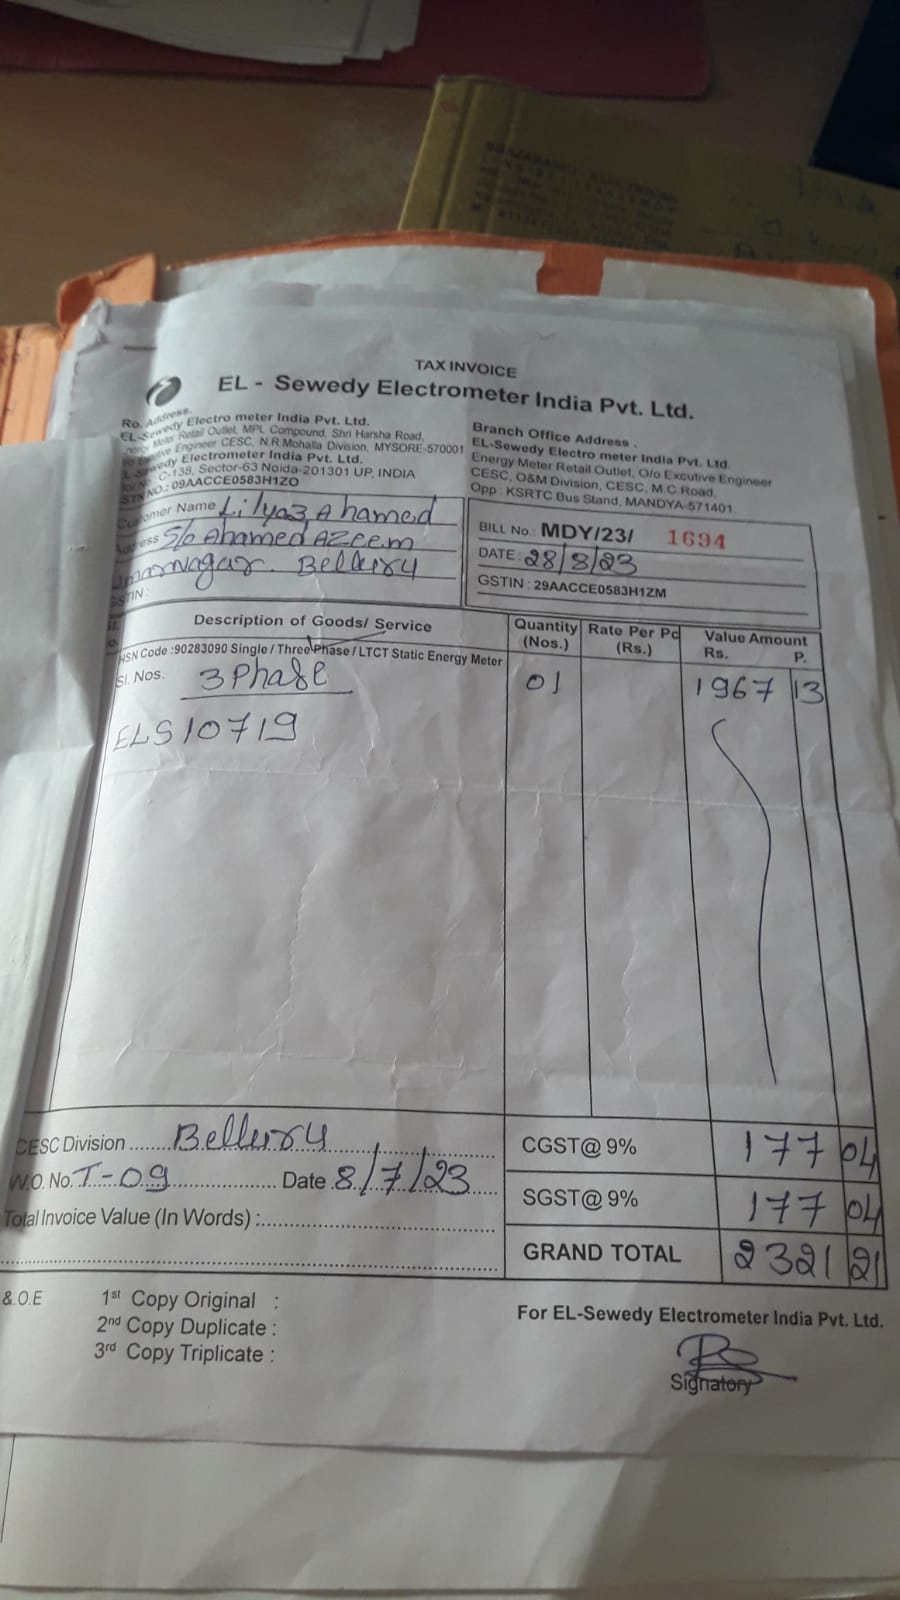 TAX INVOICE
EL - Sewedy Electrometer India Pvt. Ltd.
Ro. Address.
EL-Sewedy Electro meter India Pvt. Ltd.
Energy Meter Retail Outlet, MPL Compound, Shri Harsha Road,
Engineer CESC, N.R Mohalla Division, MYSORE-570001
Sewedy Electrometer India Pvt. Ltd.
C-138, Sector-63 Noida-201301 UP, INDIA
GSTN NO.: 09AACCE0583H1ZO
Branch Office Address .
EL-Sewedy Electro meter India Pvt. Ltd.
Energy Meter Retail Outlet, O/o Excutive Engineer
CESC, O&M Division, CESC, M.C.Road,
Opp : KSRTC Bus Stand, MANDYA-571401.
Customer Name Lilyaz Ahamed
Address S/o Ahamed AZeem
Umarnagar. Bellury
GSTIN :
BILL No.: MDY/23/ 1694
DATE : 28/8/23
GSTIN : 29AACCE0583H1ZM
Description of Goods/ Service Quantity (Nos.) Rate Per Pc (Rs.) Value Amount Rs. P.
HSN Code :90283090 Single / Three Phase / LTCT Static Energy Meter
Sl. Nos. 3 Phase 01 1967 13
ELS10719
CESC Division ...... Bellury CGST@ 9% 177 04
W.O. No. T-09 Date 8/7/23 SGST@ 9% 177 04
Total Invoice Value (In Words) :
GRAND TOTAL 2321 21
&.O.E 1st Copy Original :
2nd Copy Duplicate :
3rd Copy Triplicate :
For EL-Sewedy Electrometer India Pvt. Ltd.
Signatory